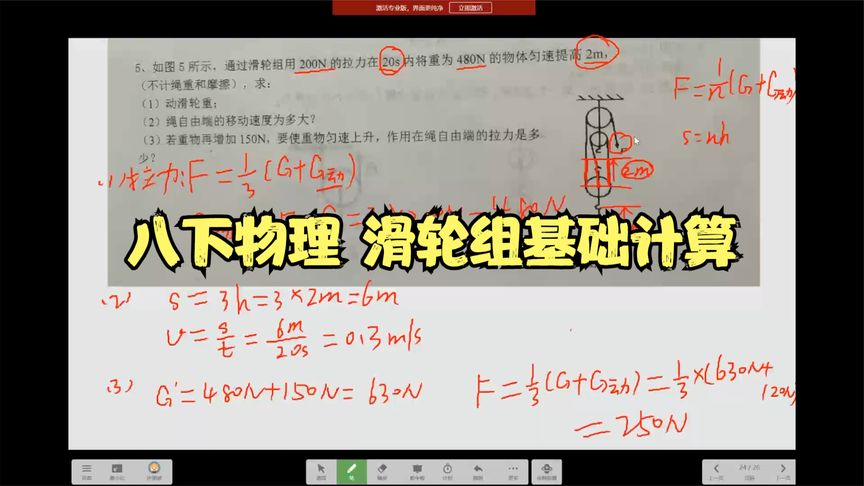 激活专业版，界面更纯净 立即激活
5、如图 5 所示，通过滑轮组用 200N 的拉力在 20s 内将重为 480N 的物体匀速提高 2m，
（不计绳重和摩擦），求：
（1）动滑轮重；
（2）绳自由端的移动速度为多大？
（3）若重物再增加 150N，要使重物匀速上升，作用在绳自由端的拉力是多
少？
F=1/n(G+G动)
s=nh
2m
(1) 拉力:F=1/3(G+G动)
八下物理 滑轮组基础计算
(2) s=3h=3×2m=6m
v=s/t=6m/20s=0.3m/s
(3) G'=480N+150N=630N
F=1/3(G+G动)=1/3×(630N+120N)
=250N
24 / 26